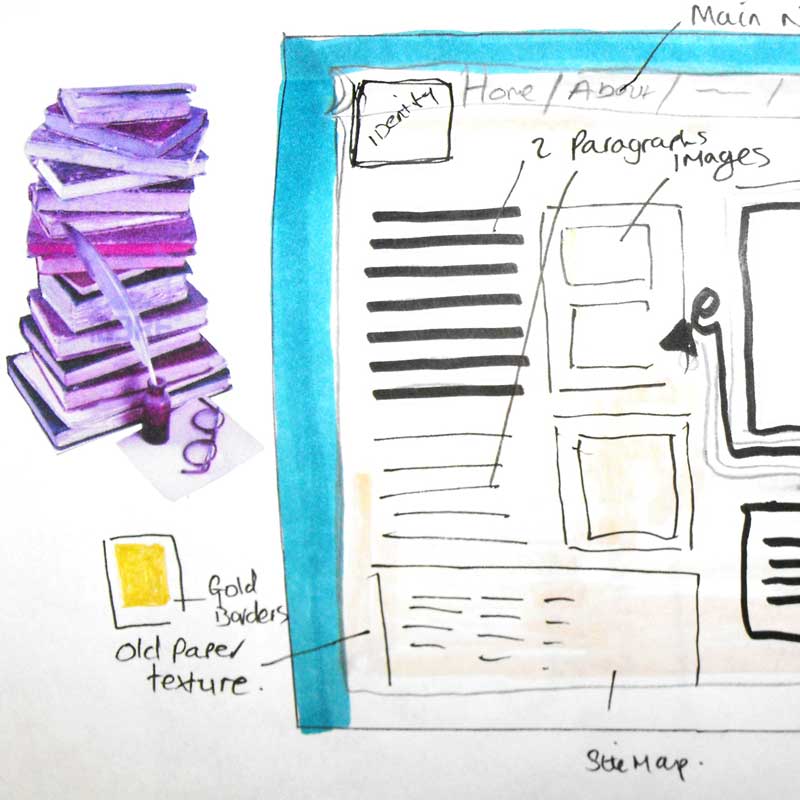 Main N
Home / About / — /
IDentity
2 Paragraphs
Images
Gold
Borders
Old Paper
texture.
Site Map.